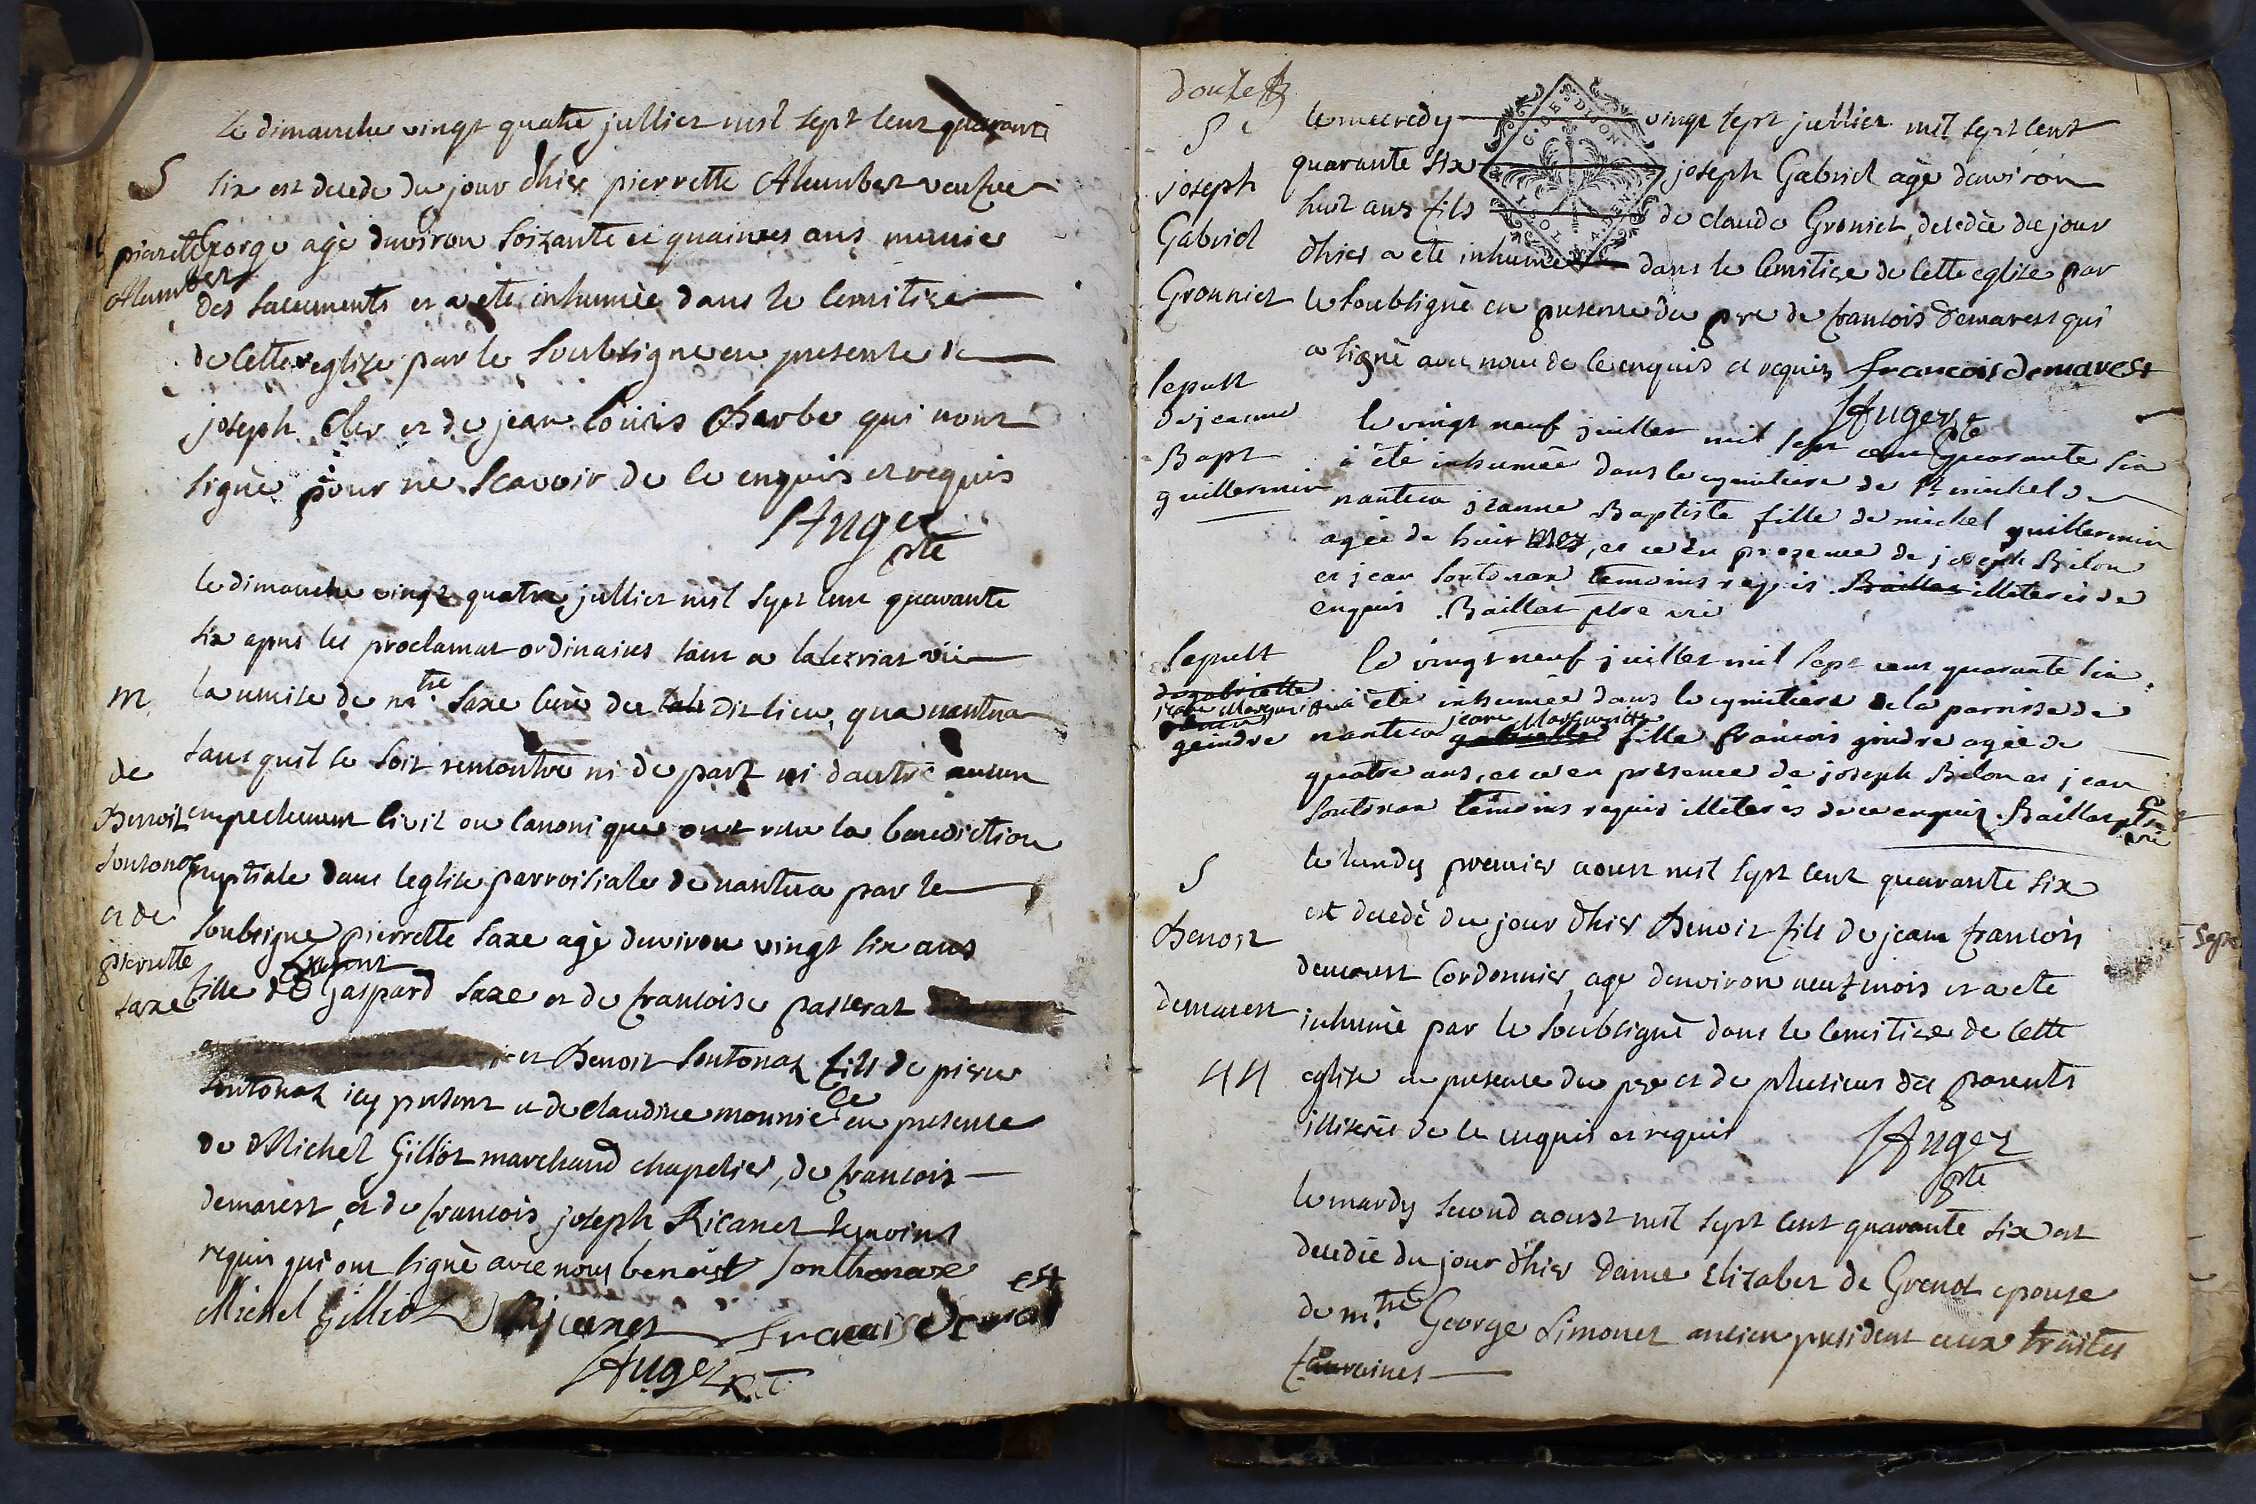 Le dimanche vingt quatre jullier mil sept cent quarante
S
six est decede du jour dhier pierrette Alumbert veufve
pierrette
George agè daviron soixante et quainzes ans munie
Alumber
des sacements et a ete inhumèe dans le cemitize
de cette eglize par le soubsigne en presente de
joseph et de jean louis Barbe qui nont
signè pour ne scavoir de ce enquis et requis
Auger
ptre
le dimanche vingt quatre jullier mil sept cent quarante
six apres les proclamat ordinaires tant a
m
la remise de mtre Saxe curè du dit lieu, qua nantua
sans quil se soit rencontrè ni de part ni dautre aucun
de
Benoit
empechement civil ou canonique ont recu la benediction
sontonaz
nuptiale dans leglise parroisiale de nantua par le
et de
soubsigne pierrette Saxe agè denviron vingt six ans
pierrette
saxe
fille de jaspard Saxe et de francoise passerat
et Benoit sontonaz fils de pierre
sontonaz icy present et de claudine mounie en presence
de Michel Gilliot marchand chapelier, de francois
demarest, et de francois joseph Ricanet temoins
requis qui ont signè avec nous benoist sonthonaxe
Michel Gilliot Ricanet francois demarest
Auger ptre
douze
S
le mecredy vingt sept jullier mil sept cent
quarante six joseph Gabriel agè daviron
joseph
huit ans fils de claude Groniet, decedèe du jour
Gabriel
dhier a ete inhume dans le cemitize de cette eglize par
Gronniet
le soubsignè en presense du pre de francois Demarest qui
a signè avec nous de ce enquis et requis francois demarest
Auger
ptre
sepult
de jeanne
Bapt
guillermin
le vingt neuf juillet mil sept cent quarante six
à été inhumée dans le cymitiere de st michel de
nantua jeanne Baptiste fille de michel guillermin
agée de huit mos, et ce en presence de joseph Bilon
et jean sontonax temoins requis Baillat illeterés de
enquis. Baillat ptre vic
sepult
de gabrielle
jeane Marguerite
geindre
le vingt neuf juillet mil sept cent quarante six
a été inhumée dans le cymitiere de la parroisse de
jeane Marguerite
nantua gabrielle fille francois geindre agée de
quatre ans, et ce en presence de joseph Bilon et jean
sontonax temoins requis illeterés de ce enquis. Baillat ptre
vic
S
le lundy premier aoust mil sept cent quarante six
est decedè du jour dhier Benoit fils de jean francois
Benoit
demarest cordonnier, age denviron neuf mois et a ete
demarest
inhumè par le soubsignè dans le cemitize de cette
44
eglise en presense du pere et de plusieurs des parents
illiterès de ce enquis et requis
Auger
ptre
le mardy second aoust mil sept cent quarante six est
decedèe du jour dhier Dame Elizabet de Grenot epouse
de mtre George Simonet ancien president aux traites
foraines